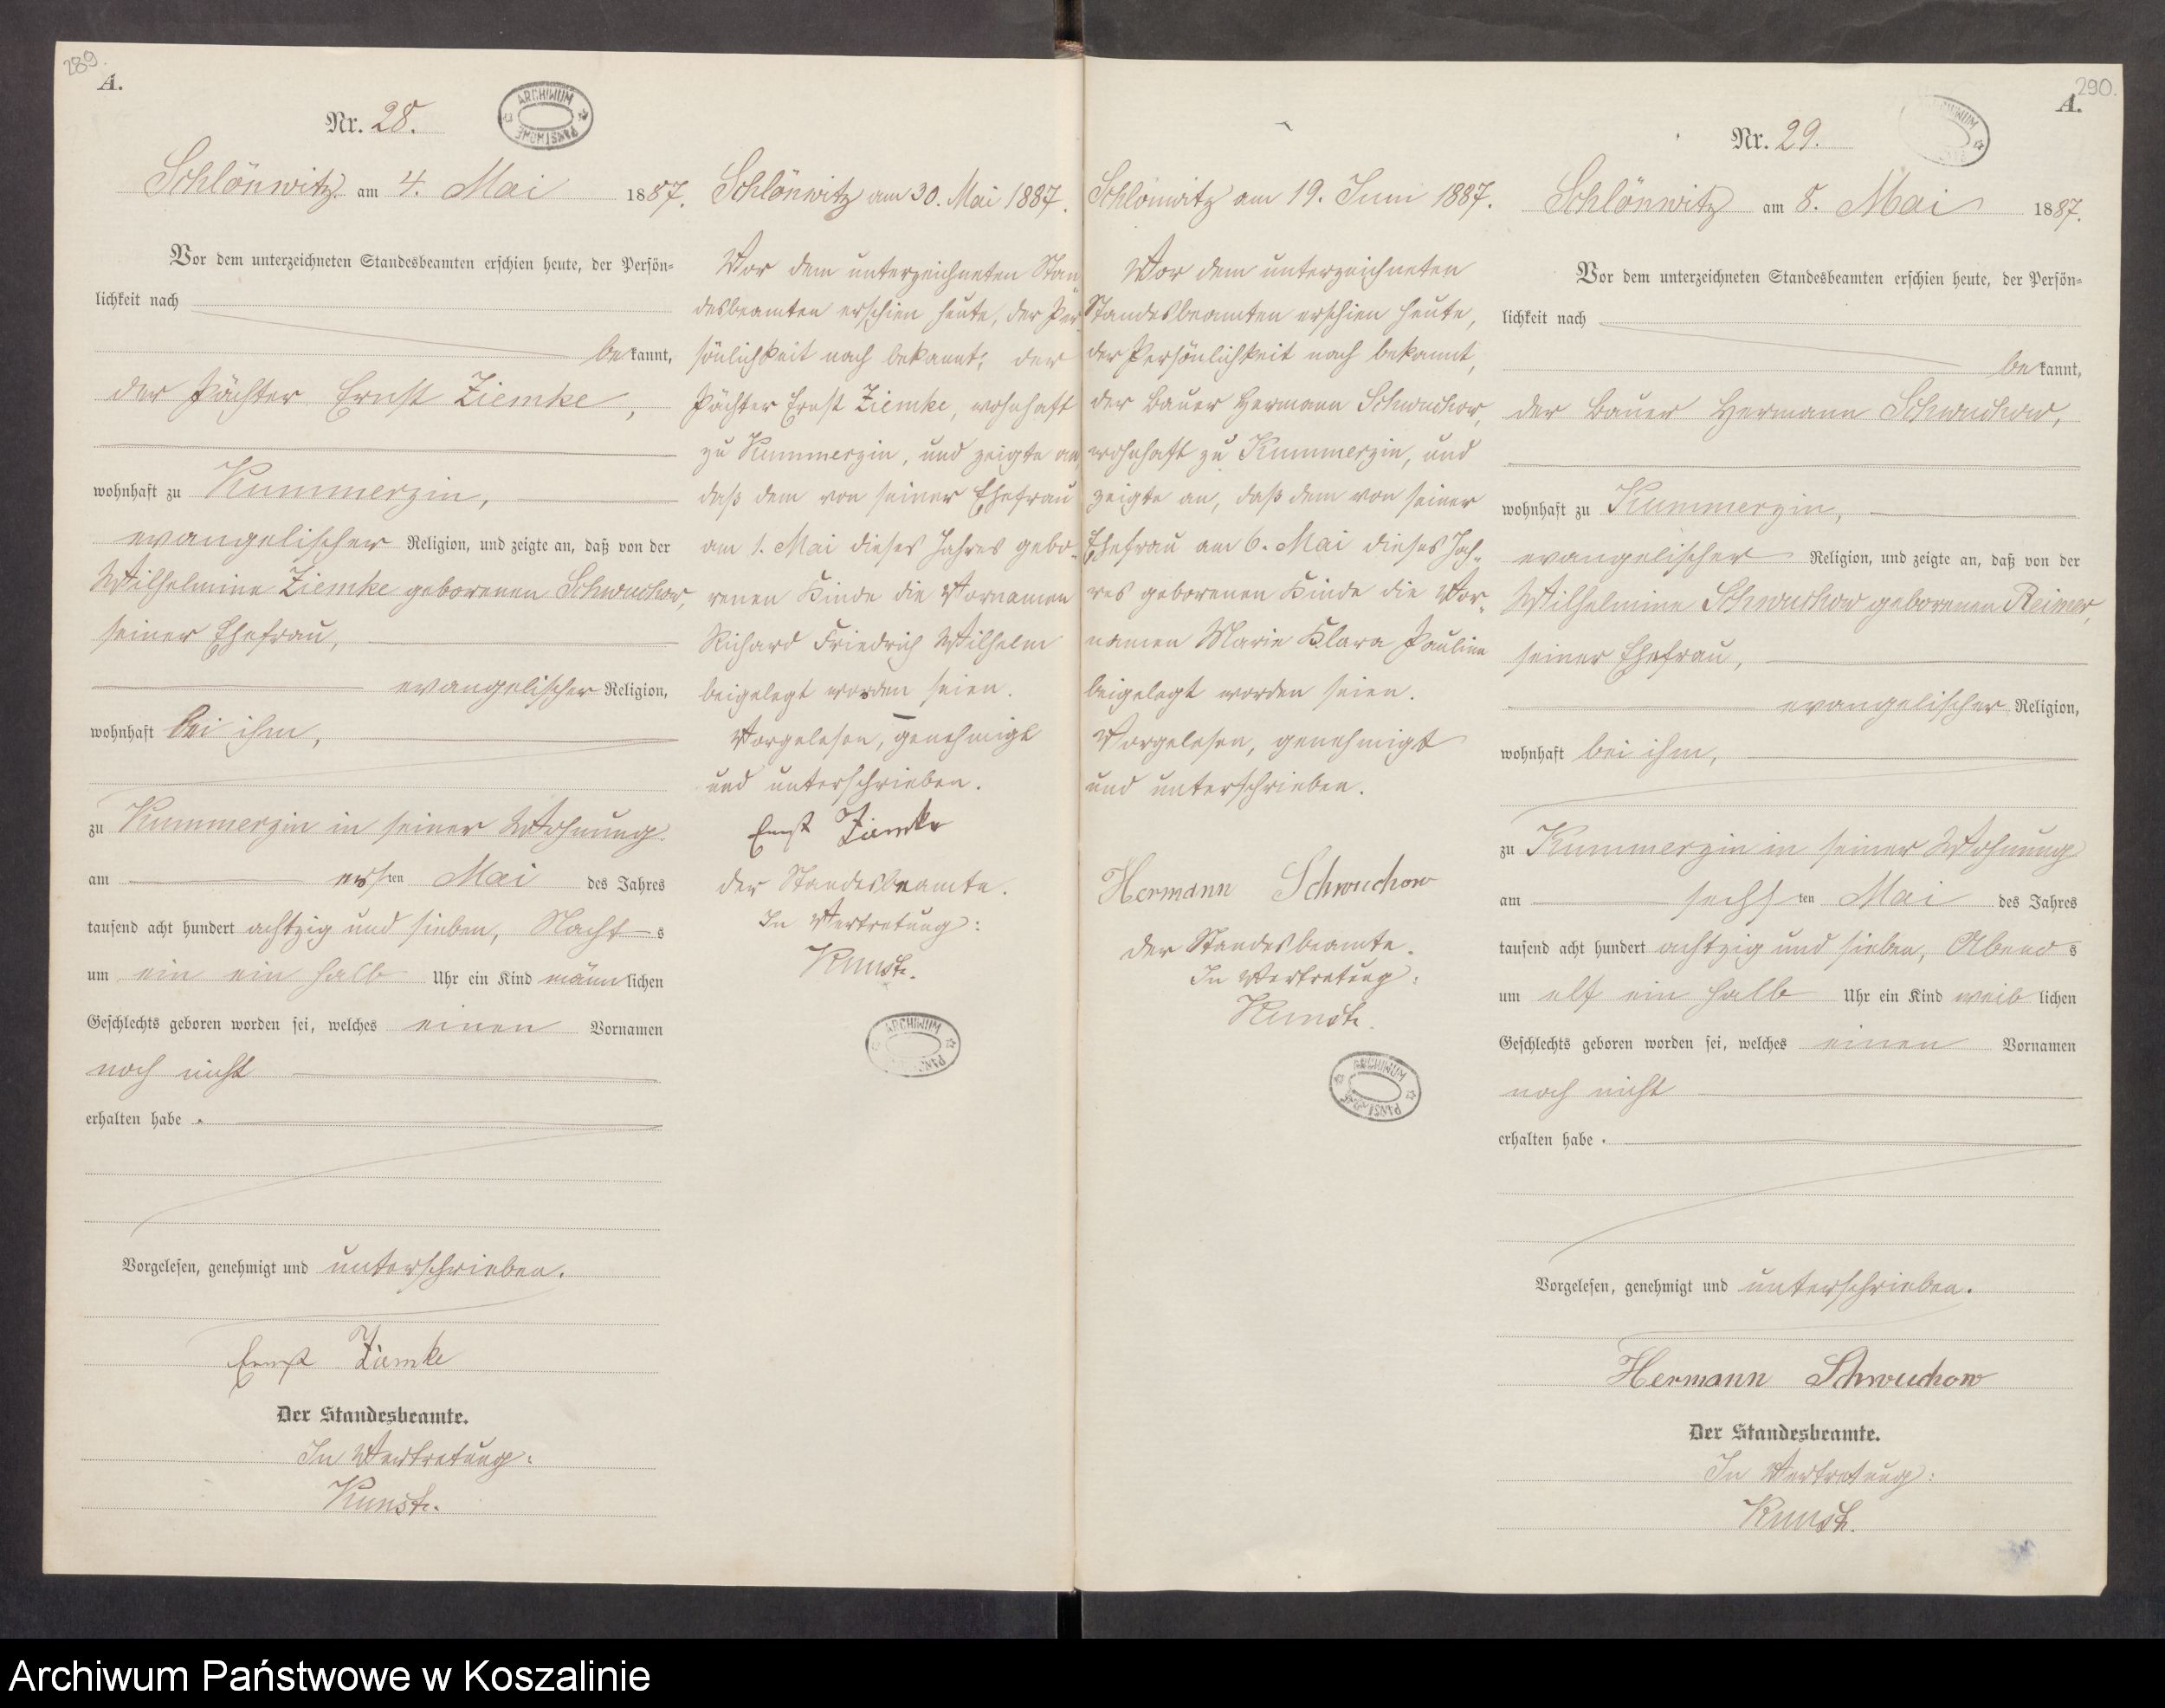 289.
A.
Nr. 28.
ARCHIWUM PAŃSTWOWE
Schlönwitz am 4. Mai 1887.
Vor dem unterzeichneten Standesbeamten erschien heute, der Persön=
lichkeit nach
bekannt,
der Pächter Ernst Ziemke,
wohnhaft zu Kummerzin,
evangelischer Religion, und zeigte an, daß von der
Wilhelmine Ziemke geborenen Schwuchow,
seiner Ehefrau,
evangelischer Religion,
wohnhaft bei ihm,
zu Kummerzin in seiner Wohnung
am ersten Mai des Jahres
tausend acht hundert achtzig und sieben, Nachts
um ein ein halb Uhr ein Kind männlichen
Geschlechts geboren worden sei, welches einen Vornamen
noch nicht
erhalten habe.
Vorgelesen, genehmigt und unterschrieben.
Ernst Ziemke
Der Standesbeamte.
In Vertretung:
Kunst.
Schlönwitz am 30. Mai 1887.
Vor dem unterzeichneten Stan-
desbeamten erschien heute, der Per-
sönlichkeit nach bekannt; der
Pächter Ernst Ziemke, wohnhaft
zu Kummerzin, und zeigte an,
daß dem von seiner Ehefrau
am 1. Mai dieses Jahres gebo-
renen Kinde die Vornamen
Richard Friedrich Wilhelm
beigelegt worden seien.
Vorgelesen, genehmigt
und unterschrieben.
Ernst Ziemke
der Standesbeamte.
In Vertretung:
Kunst.
ARCHIWUM PAŃSTWOWE
Schlönwitz am 19. Juni 1887.
Vor dem unterzeichneten
Standesbeamten erschien heute,
der Persönlichkeit nach bekannt,
der Bauer Hermann Schwuchow,
wohnhaft zu Kummerzin, und
zeigte an, daß dem von seiner
Ehefrau am 6. Mai dieses Jah-
res geborenen Kinde die Vor-
namen Marie Klara Pauline
beigelegt worden seien.
Vorgelesen, genehmigt
und unterschrieben.
Hermann Schwuchow
der Standesbeamte.
In Vertretung:
Kunst.
ARCHIWUM PAŃSTWOWE
290.
A.
Nr. 29.
ARCHIWUM
Schlönwitz am 8. Mai 1887.
Vor dem unterzeichneten Standesbeamten erschien heute, der Persön=
lichkeit nach
bekannt,
der Bauer Hermann Schwuchow,
wohnhaft zu Kummerzin,
evangelischer Religion, und zeigte an, daß von der
Wilhelmine Schwuchow geborenen Reimer,
seiner Ehefrau,
evangelischer Religion,
wohnhaft bei ihm,
zu Kummerzin in seiner Wohnung
am sechsten Mai des Jahres
tausend acht hundert achtzig und sieben, Abends
um elf ein halb Uhr ein Kind weiblichen
Geschlechts geboren worden sei, welches einen Vornamen
noch nicht
erhalten habe.
Vorgelesen, genehmigt und unterschrieben.
Hermann Schwuchow
Der Standesbeamte.
In Vertretung:
Kunst.
Archiwum Państwowe w Koszalinie